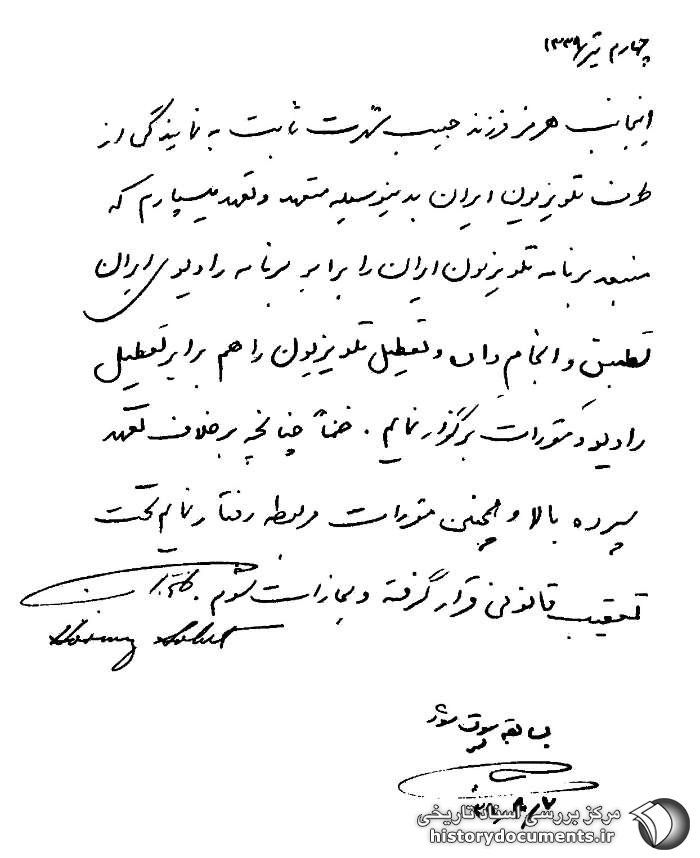 چهارم تیر ۱۳۳۹
اینجانب هرمز فرزند حبیب شهرت ثابت به نمایندگی از
طرف تلویزیون ایران بدینوسیله متعهد و تعهد میسپارم که
منبعد برنامه تلویزیون ایران را برابر برنامه رادیوی ایران
تطبیق و انجام داده و تعطیل تلویزیون را هم برابر تعطیل
رادیو و مقررات برگزار نمایم. ضمناً چنانچه برخلاف تعهد
سپرده بالا و همچنین مقررات مربوطه رفتار نمایم تحت
تعقیب قانونی قرار گرفته و مجازات شوم.
Hormoz Sabet
بسابقه پیوست شود
مرکز بررسی اسناد تاریخی
historydocuments.ir